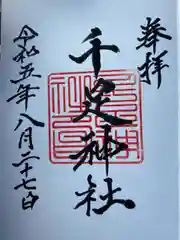 奉拝
千足神社
令和五年八月二十七日